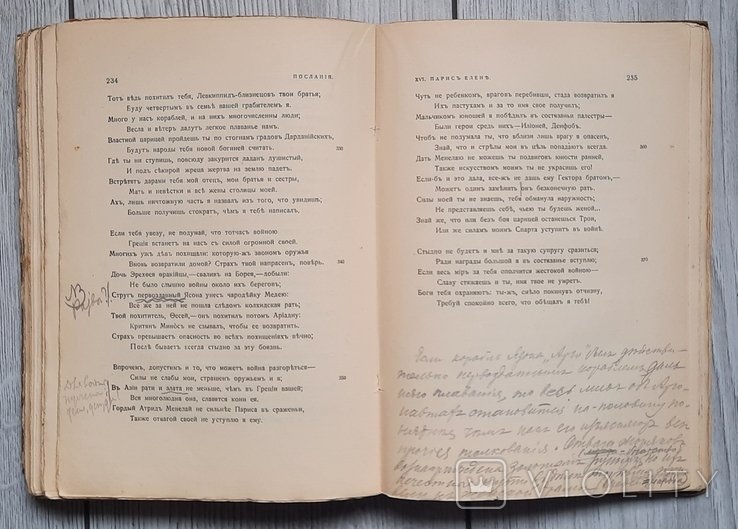 234
ПОСЛАНІЯ.
Тотъ вѣдь похитилъ тебя, Левкиппидъ-близнецовъ твои братья;
Буду четвертымъ въ семьѣ вашей грабителемъ я.
Много у насъ кораблей, и на нихъ многочисленны люди;
Весла и вѣтеръ дадутъ легкое плаванье намъ.
Властной царицей пройдешь ты по стогнамъ градовъ Дарданійскихъ,
Будутъ народы тебя новой богиней считать.
330
Гдѣ ты ни ступишь, повсюду закурится ладанъ душистый,
И подъ сѣкирой жреца жертва на землю падетъ.
Встрѣтятъ дарами тебя мой отецъ, мои братья и сестры,
Мать и невѣстки и всѣ жены столицы моей.
Ахъ, лишь ничтожную часть я назвалъ изъ того, что увидишь;
Больше получишь стократъ, чѣмъ я тебѣ написалъ.
Если тебя увезу, не подумай, что тотчасъ войною
Греція встанетъ на насъ съ силой огромной своей.
Многихъ ужъ дѣвъ похищали: которую-жъ звономъ оружья
Вновь возвратили домой? Страхъ твой напрасенъ, повѣрь.
340
Дочь Эрехѳея ѳракійцы,—сваливъ на Борея,—добыли:
Не было слышно войны около ихъ береговъ;
Стругъ первозданный Язона увезъ чародѣйку Медею:
Все же за ней не пошла слѣдомъ колхидская рать;
Твой похититель, Ѳесей,—онъ похитилъ потомъ Аріадну:
Критянъ Миносъ не сзывалъ, чтобы ее возвратить.
Страхъ превышаетъ опасность во всѣхъ похищеніяхъ вѣчно;
Послѣ бываетъ всегда стыдно за эту боязнь.
Впрочемъ, допустимъ и то, что можетъ война разгорѣться—
Силы не слабы мои, страшенъ оружьемъ и я;
350
Въ Азіи рати и злата не меньше, чѣмъ въ Греціи вашей;
Вся многолюдна она, славится конями вся.
Гордый Атридъ Менелай не сильнѣе Париса въ сраженьи,
Также отвагой своей не уступлю я ему.
XVI. ПАРИСЪ ЕЛЕНѢ.
235
Чуть не ребенкомъ, враговъ перебивши, стада возвратилъ я
Ихъ пастухамъ и за то имя свое получилъ;
Мальчикомъ юношей я побѣдилъ въ состязаньи палестры—
Были герои средь нихъ—Иліоней, Деифобъ.
Чтобъ не подумала ты, что вблизи лишь врагу я опасенъ,
Знай, что и стрѣлы мои въ цѣль попадаютъ всегда.
360
Дать Менелаю не можешь ты подвиговъ юности ранней,
Также искусствомъ моимъ ты не украсишь его!
Если-бъ и это дала, все-жъ не дашь ему Гектора братомъ,—
Можетъ одинъ замѣнить онъ безконечную рать.
Силы моей ты не знаешь, тебя обманула наружность;
Не представляешь себѣ, чьею ты будешь женой...
Знай же, что или безъ боя царицей останешься Трои,
Или же силамъ моимъ Спарта уступитъ въ войнѣ.
Стыдно не будетъ и мнѣ за такую супругу сразиться;
Ради награды большой я въ состязанье вступлю;
370
Если весь міръ за тебя ополчится жестокой войною—
Славу стяжаешь и ты, имя твое не умретъ.
Боги тебя охраняютъ: ты-жъ, смѣло покинувъ отчизну,
Требуй спокойно всего, что обѣщалъ я тебѣ!
VIOLITY